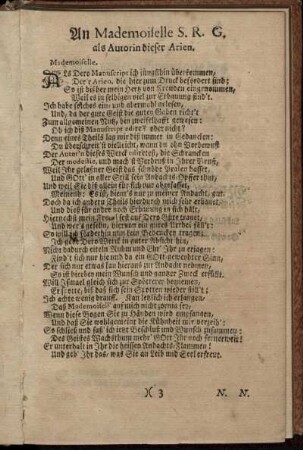 An Mademoiselle S. R. G.
als Autorin dieser Arien.
Mademoiselle.
ALs Dero Manuscript ich jüngsthin überkommen,
Der'r Arien, die hier zum Druck befördert sind;
So ist bisher mein Herz von Freuden eingenommen,
Weil es in selbigen viel zur Erbauung find't.
Ich habe solches ein- und abermahl gelesen,
Und, da der gute Geist die guten Gaben reicht
Zum allgemeinen Nutz, bin zweifelhafft gewesen:
Ob ich diß Manuscript edire? oder nicht?
Denn eines Theils lag mir diß immer in Gedancken:
Du überschreit'st vielleicht, wann du ohn Vorbewust
Der Autor'n dieses Werck edirtest, die Schrancken
Der modestie, und mach'st Verdruß in Ihrer Brust,
Weil Ihr gelaßner Geist das schnöde Prahlen hasset,
Und GOtt in aller Still sein Andachts-Opfer thut,
Und weil Sie diß allein für sich nur abgefasset,
Meinend: Es ist, dien's nur zu meiner Andacht, gut.
Doch da ich andern Theils hierdurch mich sehr erbauet,
Und dieß für ander noch Erbauung in sich hält,
Hiernächst mein Freund fest auf Dero Güte trauet,
Und wer's gesehn, hiervon ein gutes Urtheil fällt:
So will ich
Ich gebe Dero Werck in guter Absicht hin,
Nicht dadurch eiteln Ruhm und Ehr' Ihr zu erjagen:
Find't sich nur hie und da ein GOtt-geweihter Sinn,
Der sich nur etwas kan hieraus zur Andacht nehmen,
So ist hierbey mein Wunsch und ganzer Zweck erfüllt.
Will Ismael gleich sich zur Spötterey bequemen,
Er spotte, biß daß sich sein Spotten wieder stillt;
Ich achte wenig drauf. Kan ich es nur erlangen,
Daß Mademoiselle auf mich nicht zornig sey,
Wenn diese Bogen Sie zu Händen wird empfangen,
Und daß Sie wohlgemeint die Kühnheit mir verzeih':
So schließ und faß ich jetzt Beschluß und Wunsch zusammen:
Des Geistes Wachsthum mehr' GOtt Ihr noch fernerweit;
Er unterhalt in Ihr die heissen Andachts-Flammen!
Und geb' Ihr das, was Sie an Leib und Seel erfreut.
)( 3 N. N.